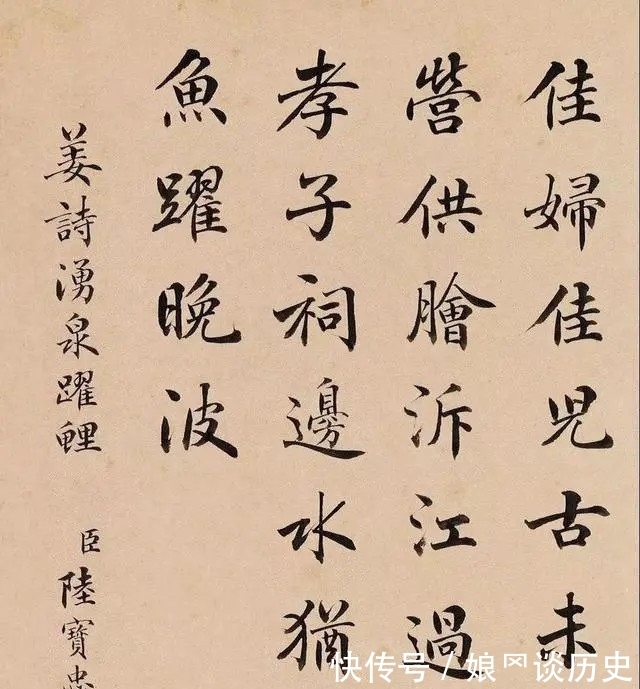 佳婦佳兒古未
營供膾泝江過
孝子祠邊水猶
魚躍晚波
姜詩湧泉躍鯉
臣陸寶忠
快传号/娘罓谈历史